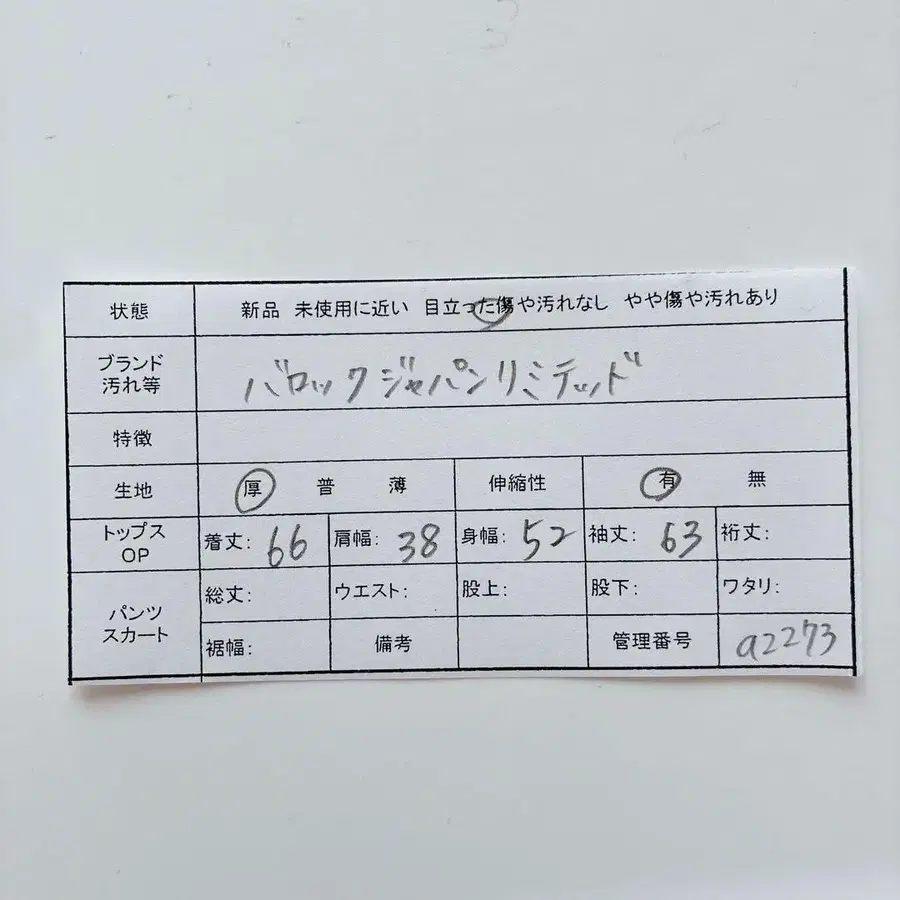 状態 新品 未使用に近い 目立った傷や汚れなし やや傷や汚れあり
ブランド
汚れ等
バロックジャパンリミテッド
特徴
生地 厚 普 薄 伸縮性 有 無
トップス
OP
着丈: 66 肩幅: 38 身幅: 52 袖丈: 63 裄丈:
パンツ
スカート
総丈: ウエスト: 股上: 股下: ワタリ:
裾幅: 備考 管理番号 a2273